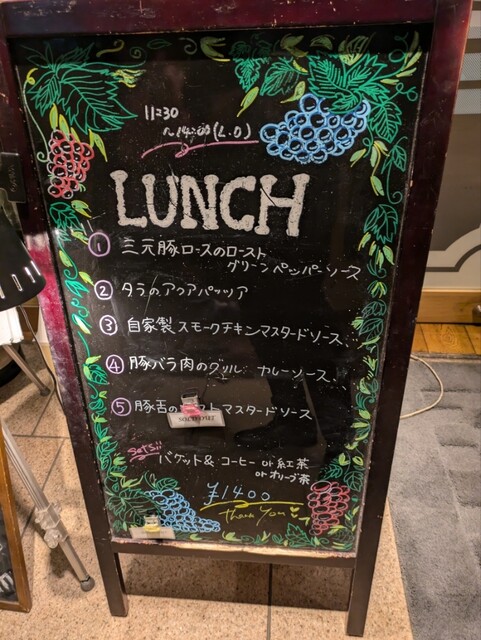 11:30
~14:00(L.O)
LUNCH
① 三元豚ロースのロースト
グリーンペッパーソース
② タラのアクアパッツァ
③ 自家製スモークチキンマスタードソース
④ 豚バラ肉のグリル カレーソース
⑤ 豚舌の トマスタードソース
バゲット& コーヒー or 紅茶
or オリーブ茶
¥1400
Thank You